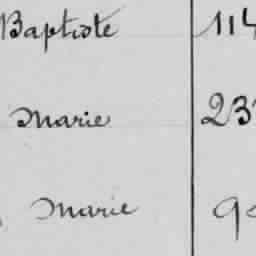 Baptiste 114
Marie 23
Marie 9